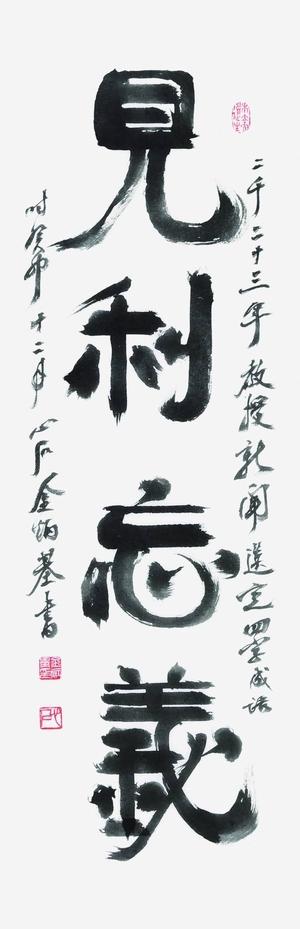 二千二十三年敎授新聞選定四字成語
見利忘義
時癸卯十二月心石金炳基書